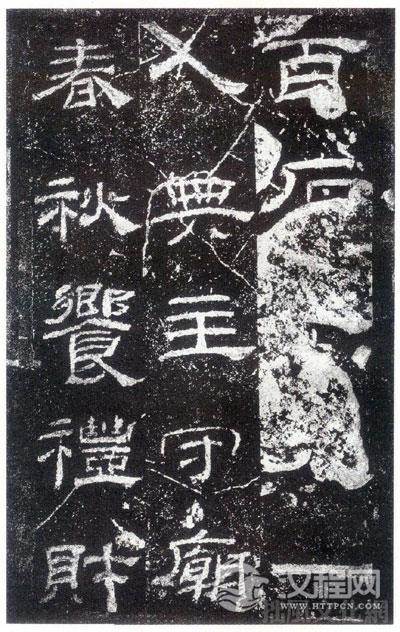 百石一
人典主守廟
春秋饗禮財
汉程网
WWW.HTTPCN.COM